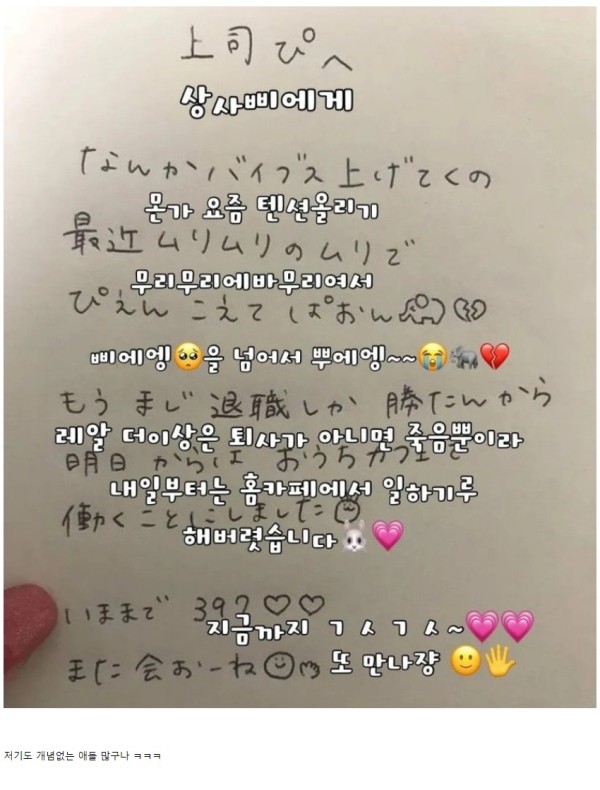 上司ぴへ
상사삐에게
なんかバイブス上げてくの
몬가 요즘 텐션올리기
最近ムリムリのムリで
무리무리에바무리여서
ぴえん こえて ぱおん
삐에엥🥺을 넘어서 뿌에엥~~😭🐃💔
もう まじ 退職しか 勝たんから
레알 더이상은 퇴사가 아니면 죽음뿐이라
明日 からは おうちカフェで
내일부터는 홈카페에서 일하기루
働くことにしました
해버렷습니다🐰💗
いままで 39?♡♡
지금까지 ㄱㅅㄱㅅ~💗💗
また会おーね
또 만나쟝 🙂🖐
저기도 개념없는 애들 많구나 ㅋㅋㅋ